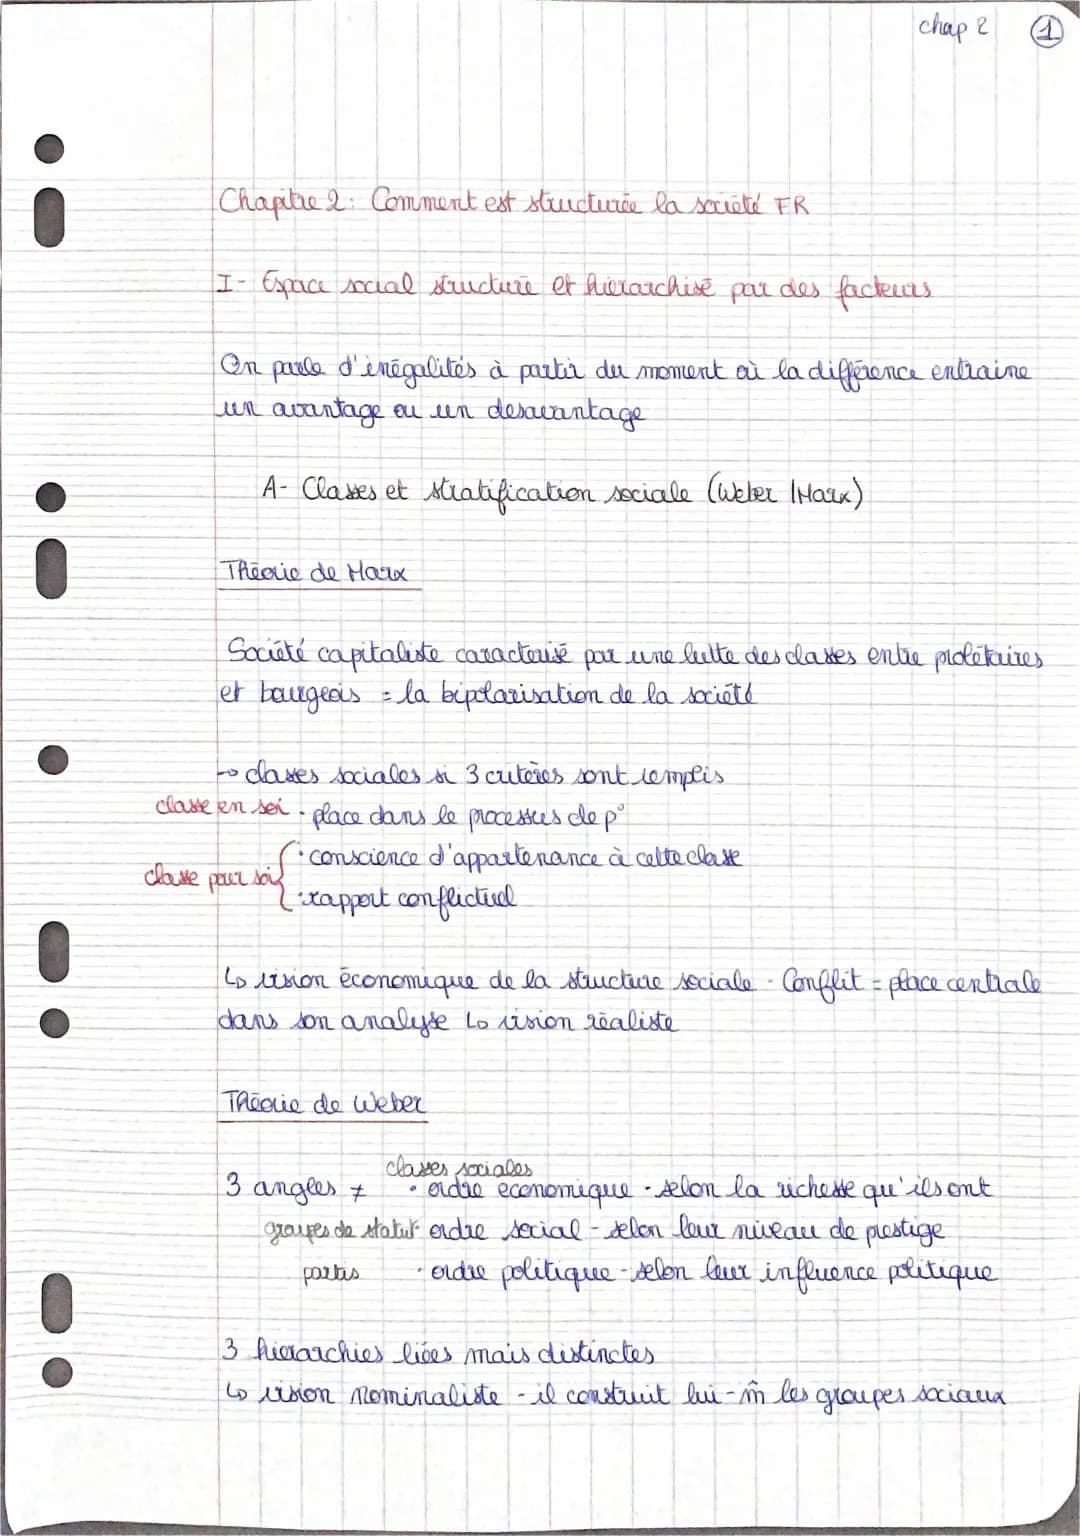 chap 2 1
Chapitre 2: Comment est structurée la société FR
I- Espace social structuré et hiérarchisé par des facteurs
On parle d'inégalités à partir du moment où la différence entraine
un avantage ou un desavantage
A- Classes et stratification sociale (Weber / Marx)
Théorie de Marx
Société capitaliste caracterisé par une lutte des classes entre prolétaires
et bourgeois = la bipolarisation de la société
→ classes sociales si 3 critères sont remplis
classe en soi • place dans le processus de p°
• conscience d'appartenance à cette classe
classe pour soi
• rapport conflictuel
↳ vision économique de la structure sociale - Conflit = place centrale
dans son analyse ↳ vision réaliste
Théorie de Weber
classes sociales
3 angles ≠ • ordre économique - selon la richesse qu'ils ont
groupes de statut • ordre social - selon leur niveau de prestige
partis • ordre politique - selon leur influence politique
3 hiérarchies liées mais distinctes
↳ vision nominaliste - il construit lui-m̂ les groupes sociaux